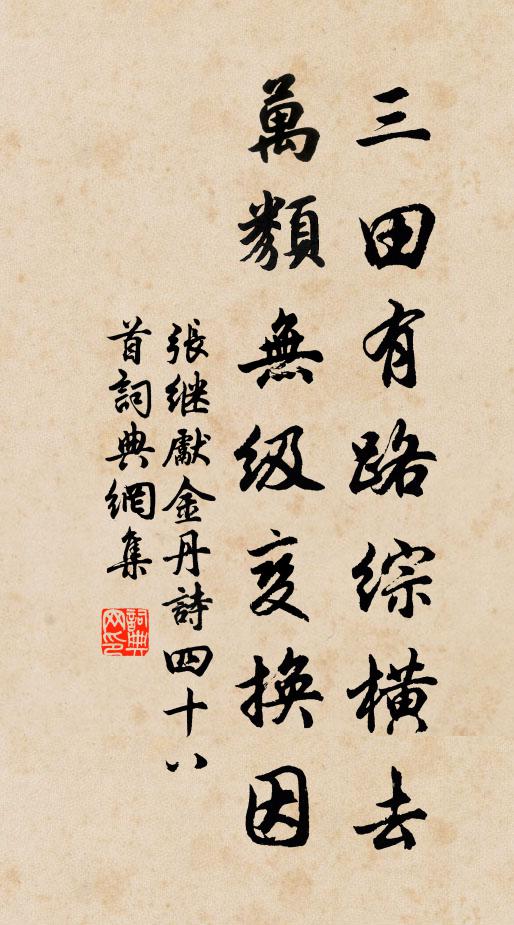 三田有路综橫去
萬類無級变换因
張继獻金丹詩四十八
首詞典網集
詞典网印